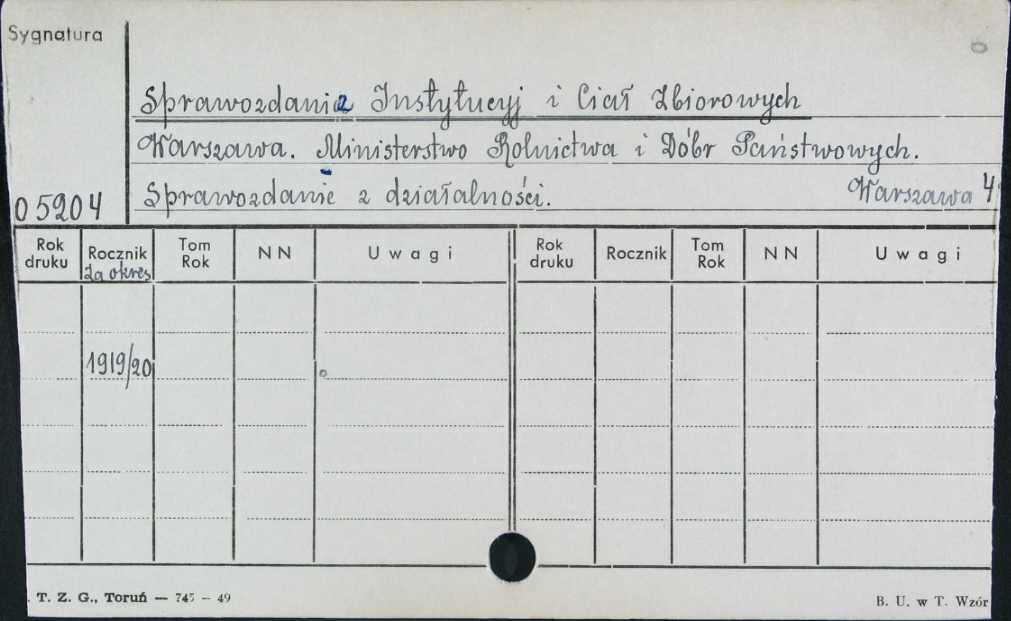 Sygnatura
Sprawozdania Instytucyj i Ciał Zbiorowych
Warszawa. Ministerstwo Rolnictwa i Dóbr Państwowych.
Sprawozdanie z działalności. Warszawa 4°
05204
Rok druku Rocznik Tom Rok NN Uwagi Rok druku Rocznik Tom Rok NN Uwagi
Za okres
1919/20
T. Z. G., Toruń — 745 — 49
B. U. w T. Wzór